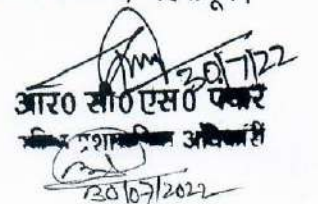 30/7/22
आर0 सी0 एस0 पवार
वरिष्ठ प्रशासनिक अधिकारी
30/07/2022